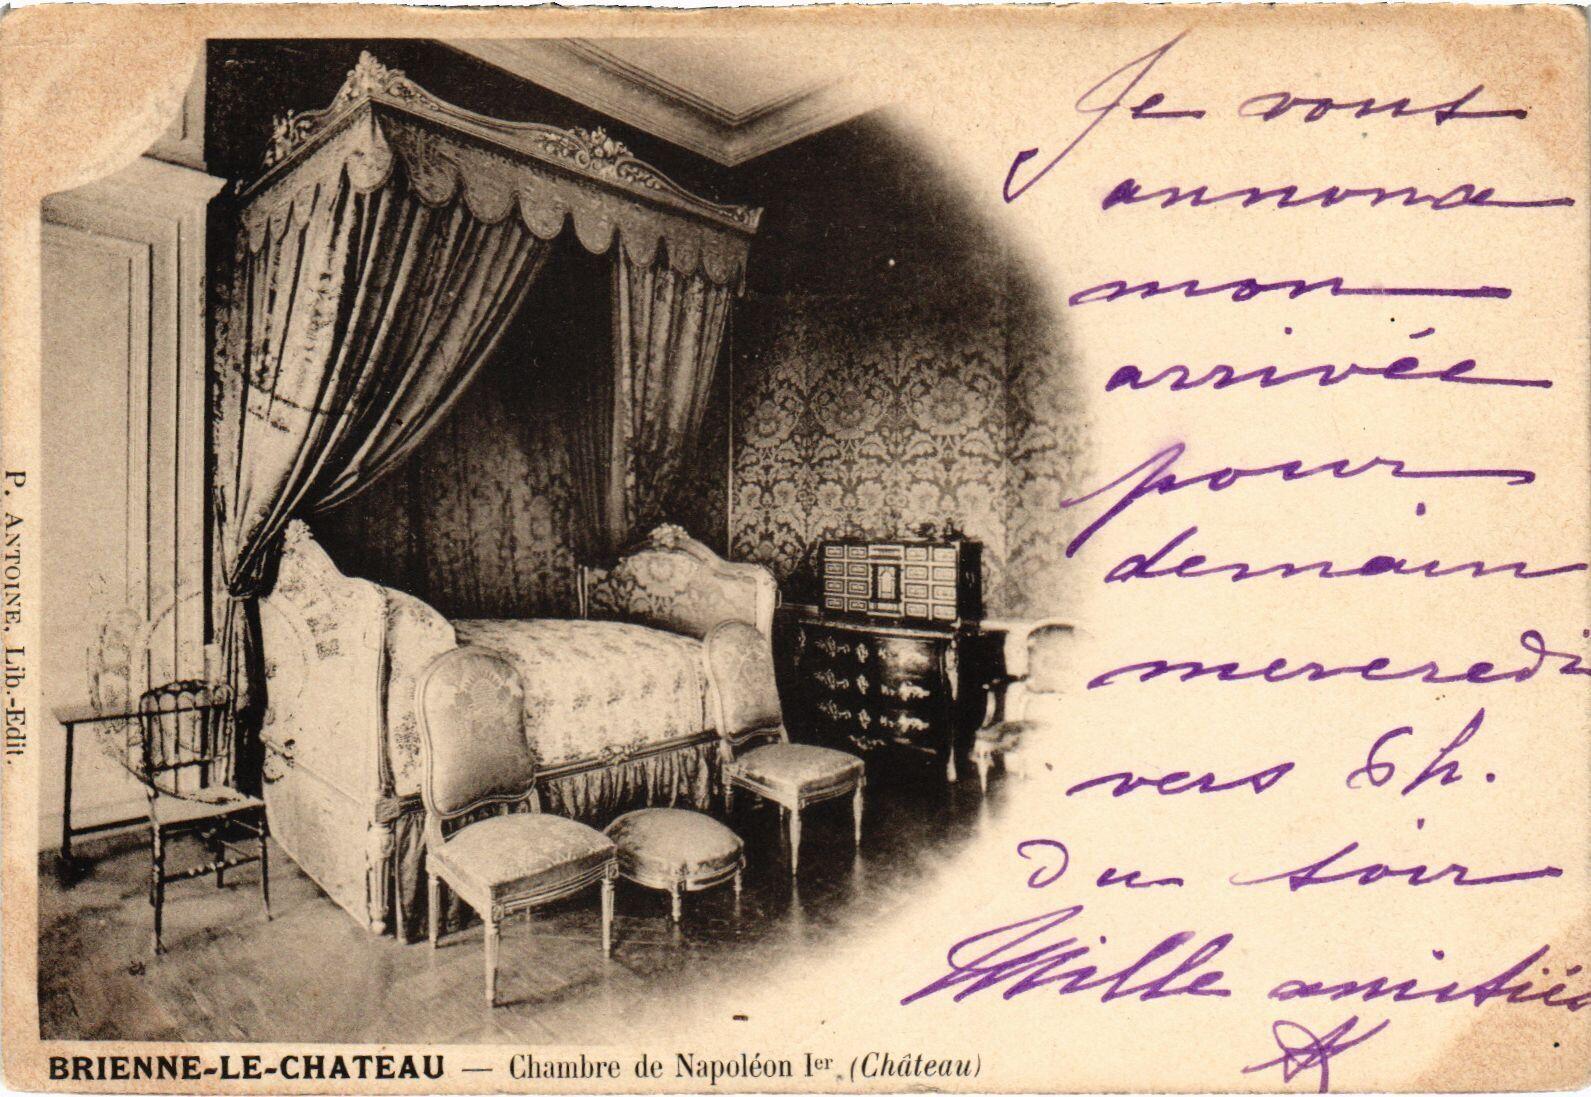 Je vous
annonce
mon
arrivée
pour
demain
mercredi
vers 6h.
du soir
Mille amitiés
P. ANTOINE, Lib.-Edit.
BRIENNE-LE-CHATEAU — Chambre de Napoléon Ier (Château)